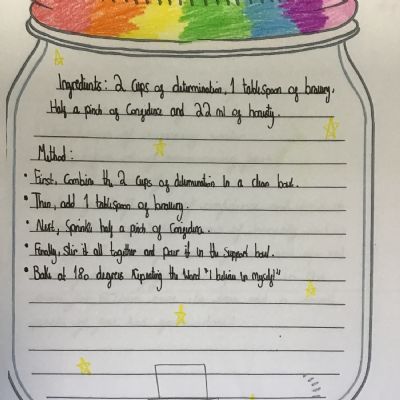 Ingredients: 2 cups of determination, 1 tablespoon of bravery,
Half a pinch of Confidence and 22 ml of honesty.
Method:
• First, Combine the 2 cups of determination In a clean bowl.
• Then, add 1 tablespoon of bravery.
• Next, Sprinkle half a pinch of Confidence.
• Finally, stir it all together and pour it in the support bowl.
• Bake at 180 degrees repeating the Word "I believe in myself!"